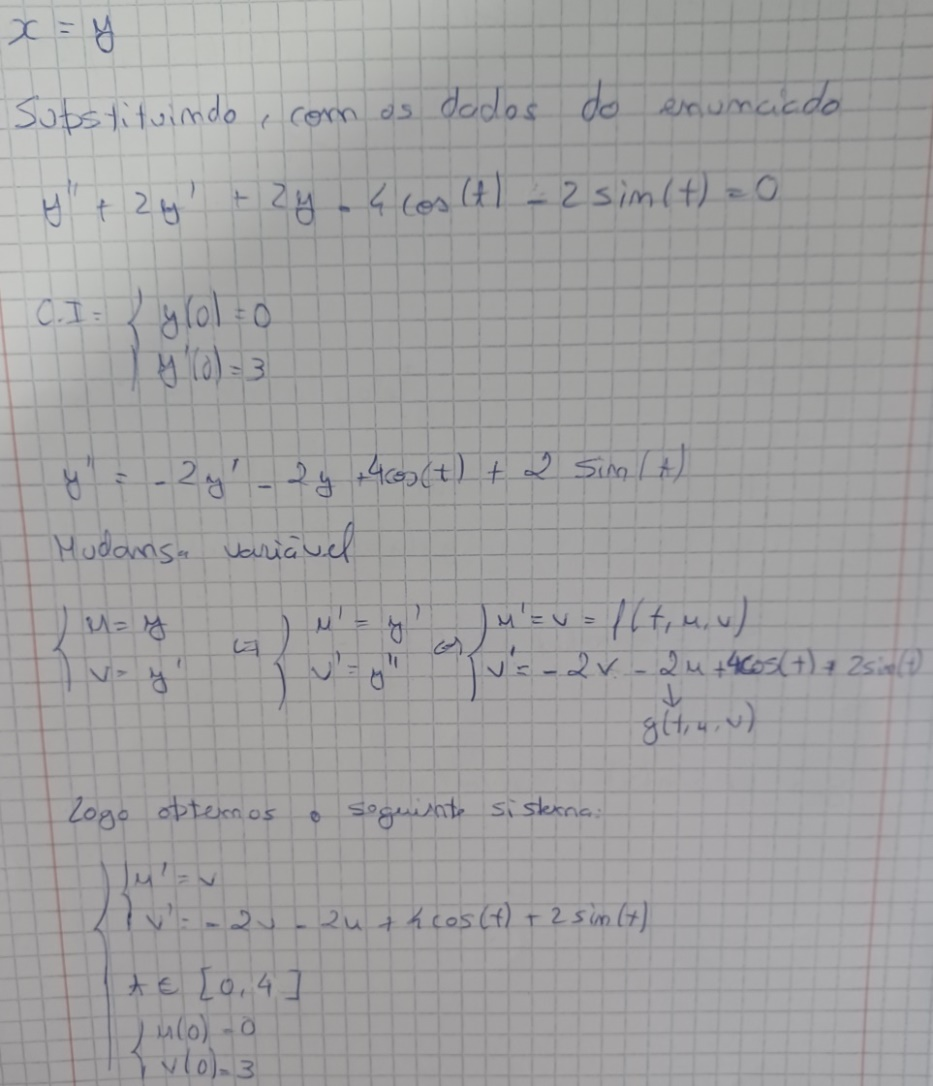 x = y
Substituindo, com os dados do enunciado
y'' + 2y' + 2y - 4 cos(t) - 2 sin(t) = 0
C.I = { y(0) = 0
y'(0) = 3
y'' = - 2y' - 2y + 4cos(t) + 2 sin(t)
Mudans. variável
{ u = y ⇔ { u' = y' ⇔ { u' = v = f(t, u, v)
v = y' v' = y'' v' = - 2v - 2u + 4cos(t) + 2sin(t)
↓
g(t, u, v)
Logo obtemos o seguinte sistema:
{ { u' = v
v' = - 2v - 2u + 4 cos(t) + 2 sin(t)
t ∈ [0, 4]
{ u(0) = 0
v(0) = 3